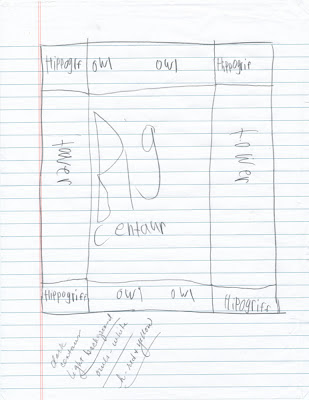 Hippogriff owl owl Hippogriff
tower
tower
Big
Centaur
Hippogriff owl owl Hippogriff
dark
centaur
light background
owls - white
h. red + yellow